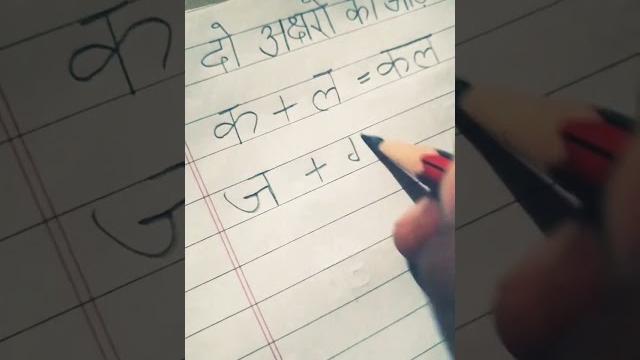 दो अक्षरों को जोड़
क + ल = कल
ज +